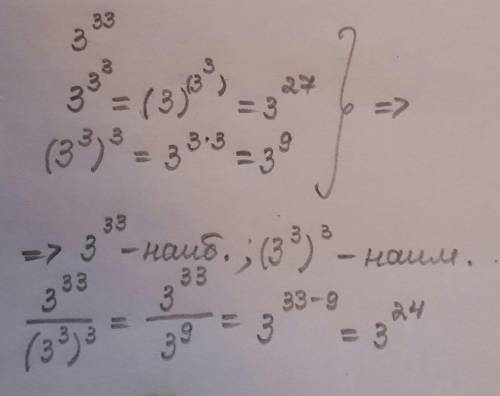 3^33
3^3^3 = (3)^(3^3) = 3^27 } =>
(3^3)^3 = 3^3·3 = 3^9
=> 3^33 - наиб. ; (3^3)^3 - наим.
3^33/(3^3)^3 = 3^33/3^9 = 3^33-9 = 3^24